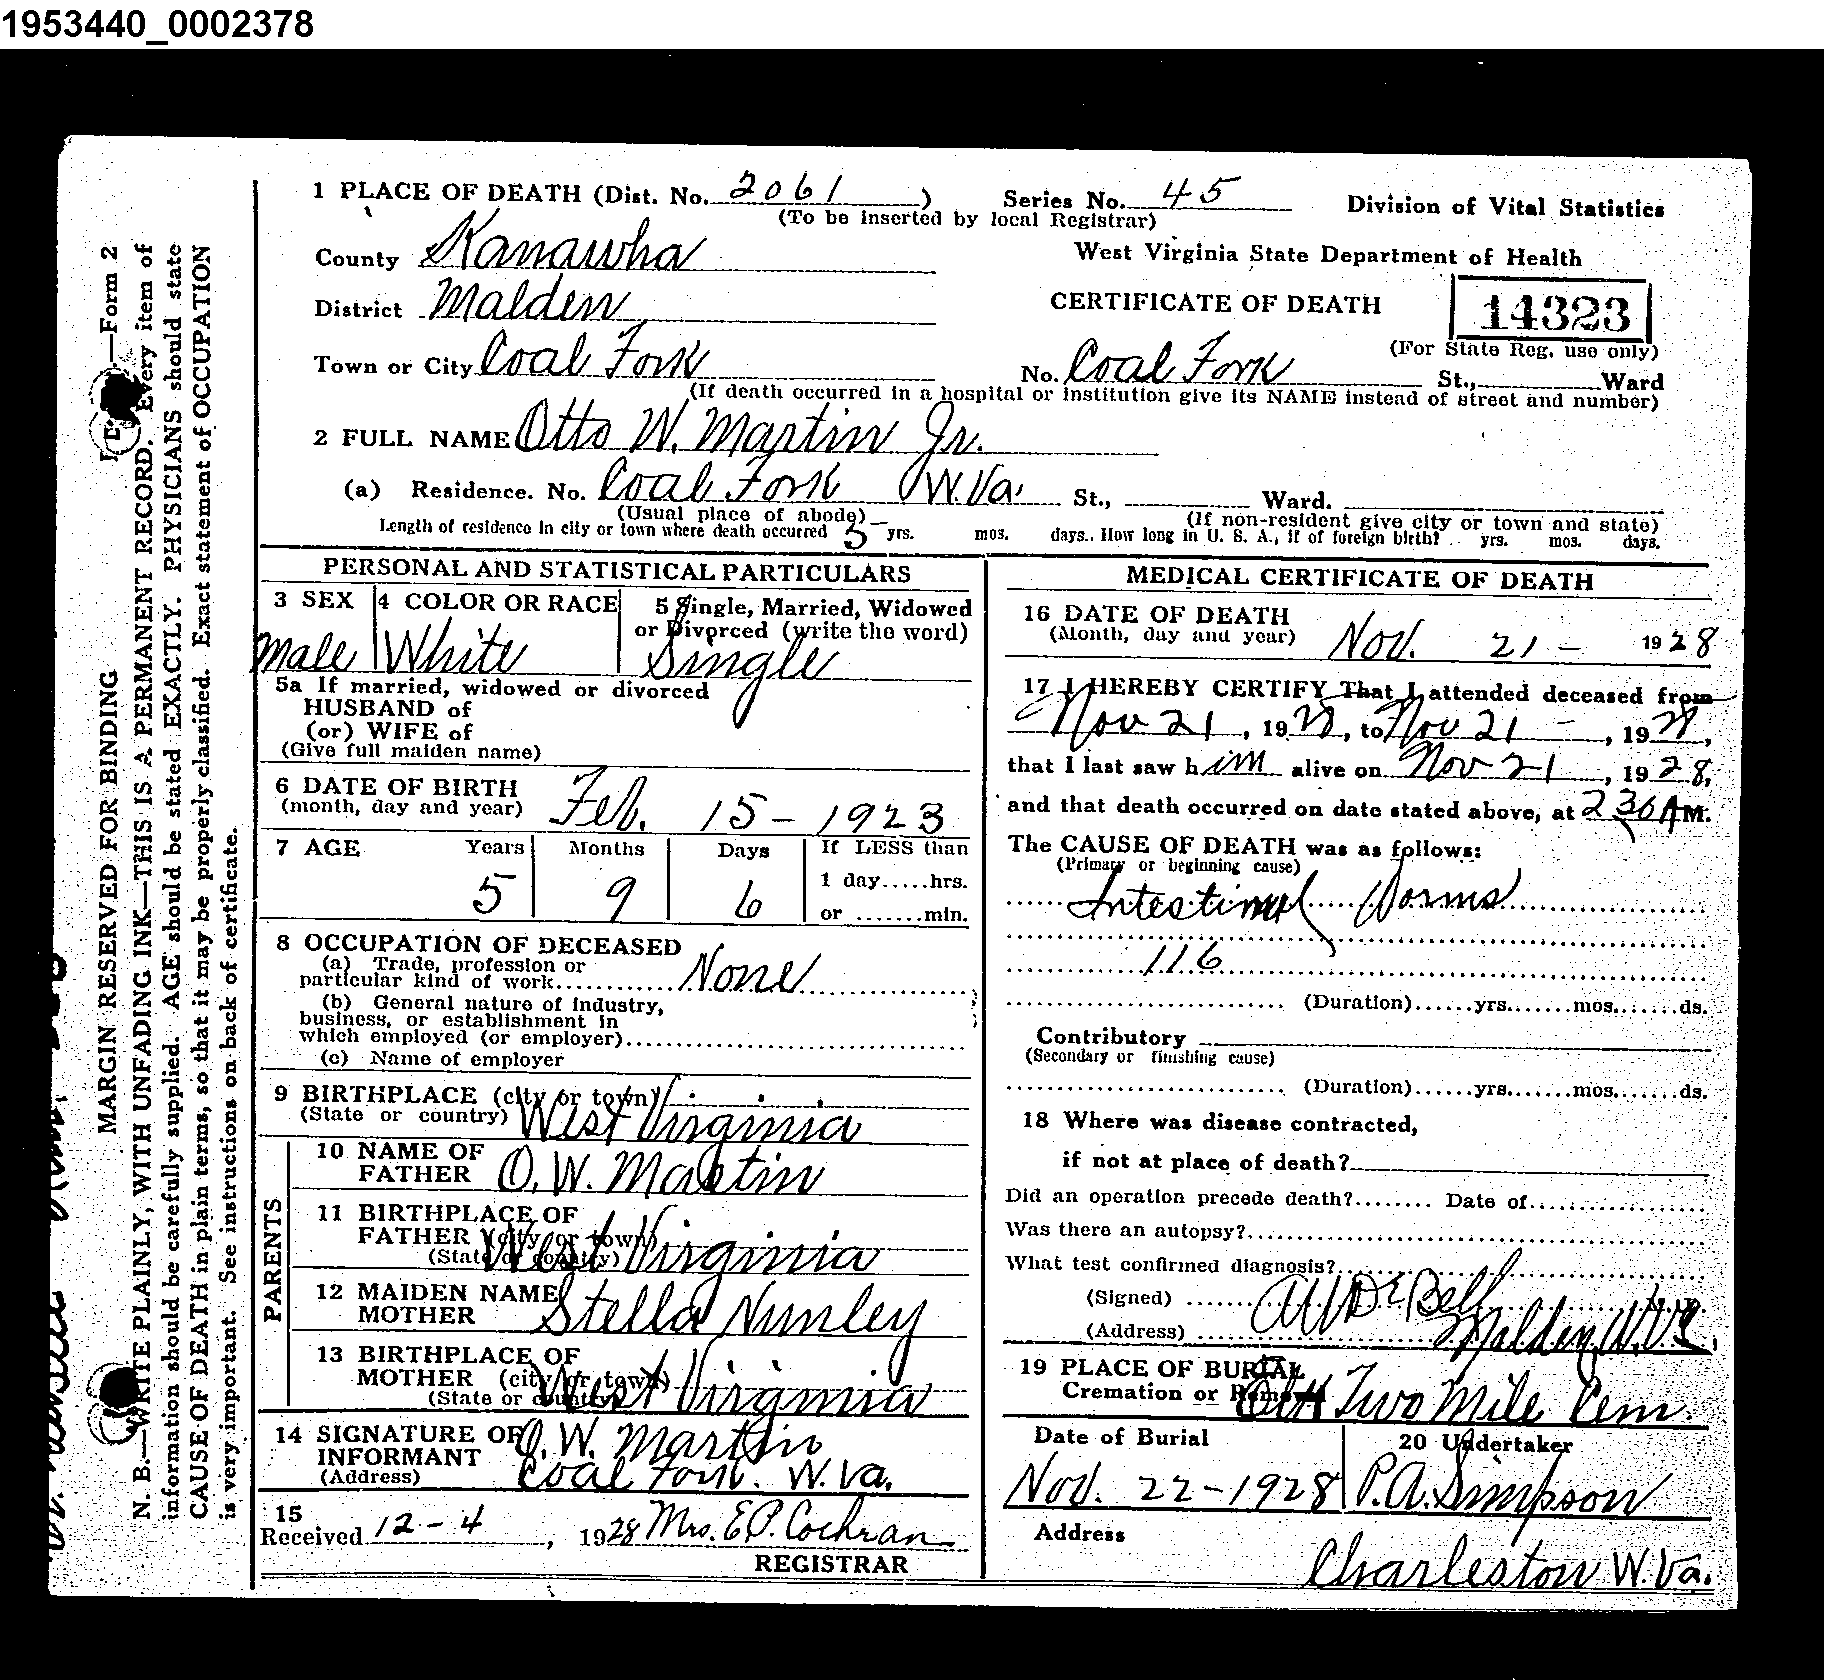 1953440_0002378
1 PLACE OF DEATH (Dist. No. 2061 ) Series No. 45 Division of Vital Statistics
(To be inserted by local Registrar)
County Kanawha West Virginia State Department of Health
District Malden CERTIFICATE OF DEATH 14323
(For State Reg. use only)
Town or City Coal Fork No. Coal Fork St., Ward
(If death occurred in a hospital or institution give its NAME instead of street and number)
2 FULL NAME Otto W. Martin Jr.
(a) Residence. No. Coal Fork W.Va. St., Ward.
(Usual place of abode) (If non-resident give city or town and state)
Length of residence in city or town where death occurred 5 yrs. mos. days. How long in U. S. A., if of foreign birth? yrs. mos. days.
PERSONAL AND STATISTICAL PARTICULARS
3 SEX 4 COLOR OR RACE 5 Single, Married, Widowed
or Divorced (write the word)
Male White Single
5a If married, widowed or divorced
HUSBAND of
(or) WIFE of
(Give full maiden name)
6 DATE OF BIRTH
(month, day and year) Feb. 15 - 1923
7 AGE Years Months Days If LESS than
5 9 6 1 day.....hrs.
or .......min.
8 OCCUPATION OF DECEASED
(a) Trade, profession or
particular kind of work............ None
(b) General nature of industry,
business, or establishment in
which employed (or employer)
(c) Name of employer
9 BIRTHPLACE (city or town)
(State or country) West Virginia
PARENTS
10 NAME OF
FATHER O. W. Martin
11 BIRTHPLACE OF
FATHER (city or town)
(State or country) West Virginia
12 MAIDEN NAME
MOTHER Stella Nunley
13 BIRTHPLACE OF
MOTHER (city or town)
(State or country) West Virginia
14 SIGNATURE OF
INFORMANT O. W. Martin
(Address) Coal Fork. W. Va.
15
Received 12 - 4 , 1928 Mrs. E.P. Cochran
REGISTRAR
MEDICAL CERTIFICATE OF DEATH
16 DATE OF DEATH
(Month, day and year) Nov. 21 - 1928
17 I HEREBY CERTIFY That I attended deceased from
Nov 21 , 1928, to Nov 21 - , 1928,
that I last saw him alive on Nov 21 , 1928,
and that death occurred on date stated above, at 2 30 A M.
The CAUSE OF DEATH was as follows:
(Primary or beginning cause)
Intestinal Worms
116
(Duration)......yrs.......mos.......ds.
Contributory
(Secondary or finishing cause)
(Duration)......yrs.......mos.......ds.
18 Where was disease contracted,
if not at place of death?
Did an operation precede death?........ Date of
Was there an autopsy?
What test confirmed diagnosis?
(Signed) Bell
(Address) Malden, W.Va.
19 PLACE OF BURIAL
Cremation or Removal Two Mile Cem.
Date of Burial 20 Undertaker
Nov. 22 - 1928 P.A. Simpson
Address
Charleston W.Va.
MARGIN RESERVED FOR BINDING —Form 2
N. B.—WRITE PLAINLY, WITH UNFADING INK—THIS IS A PERMANENT RECORD. Every item of
information should be carefully supplied. AGE should be stated EXACTLY. PHYSICIANS should state
CAUSE OF DEATH in plain terms, so that it may be properly classified. Exact statement of OCCUPATION
is very important. See instructions on back of certificate.